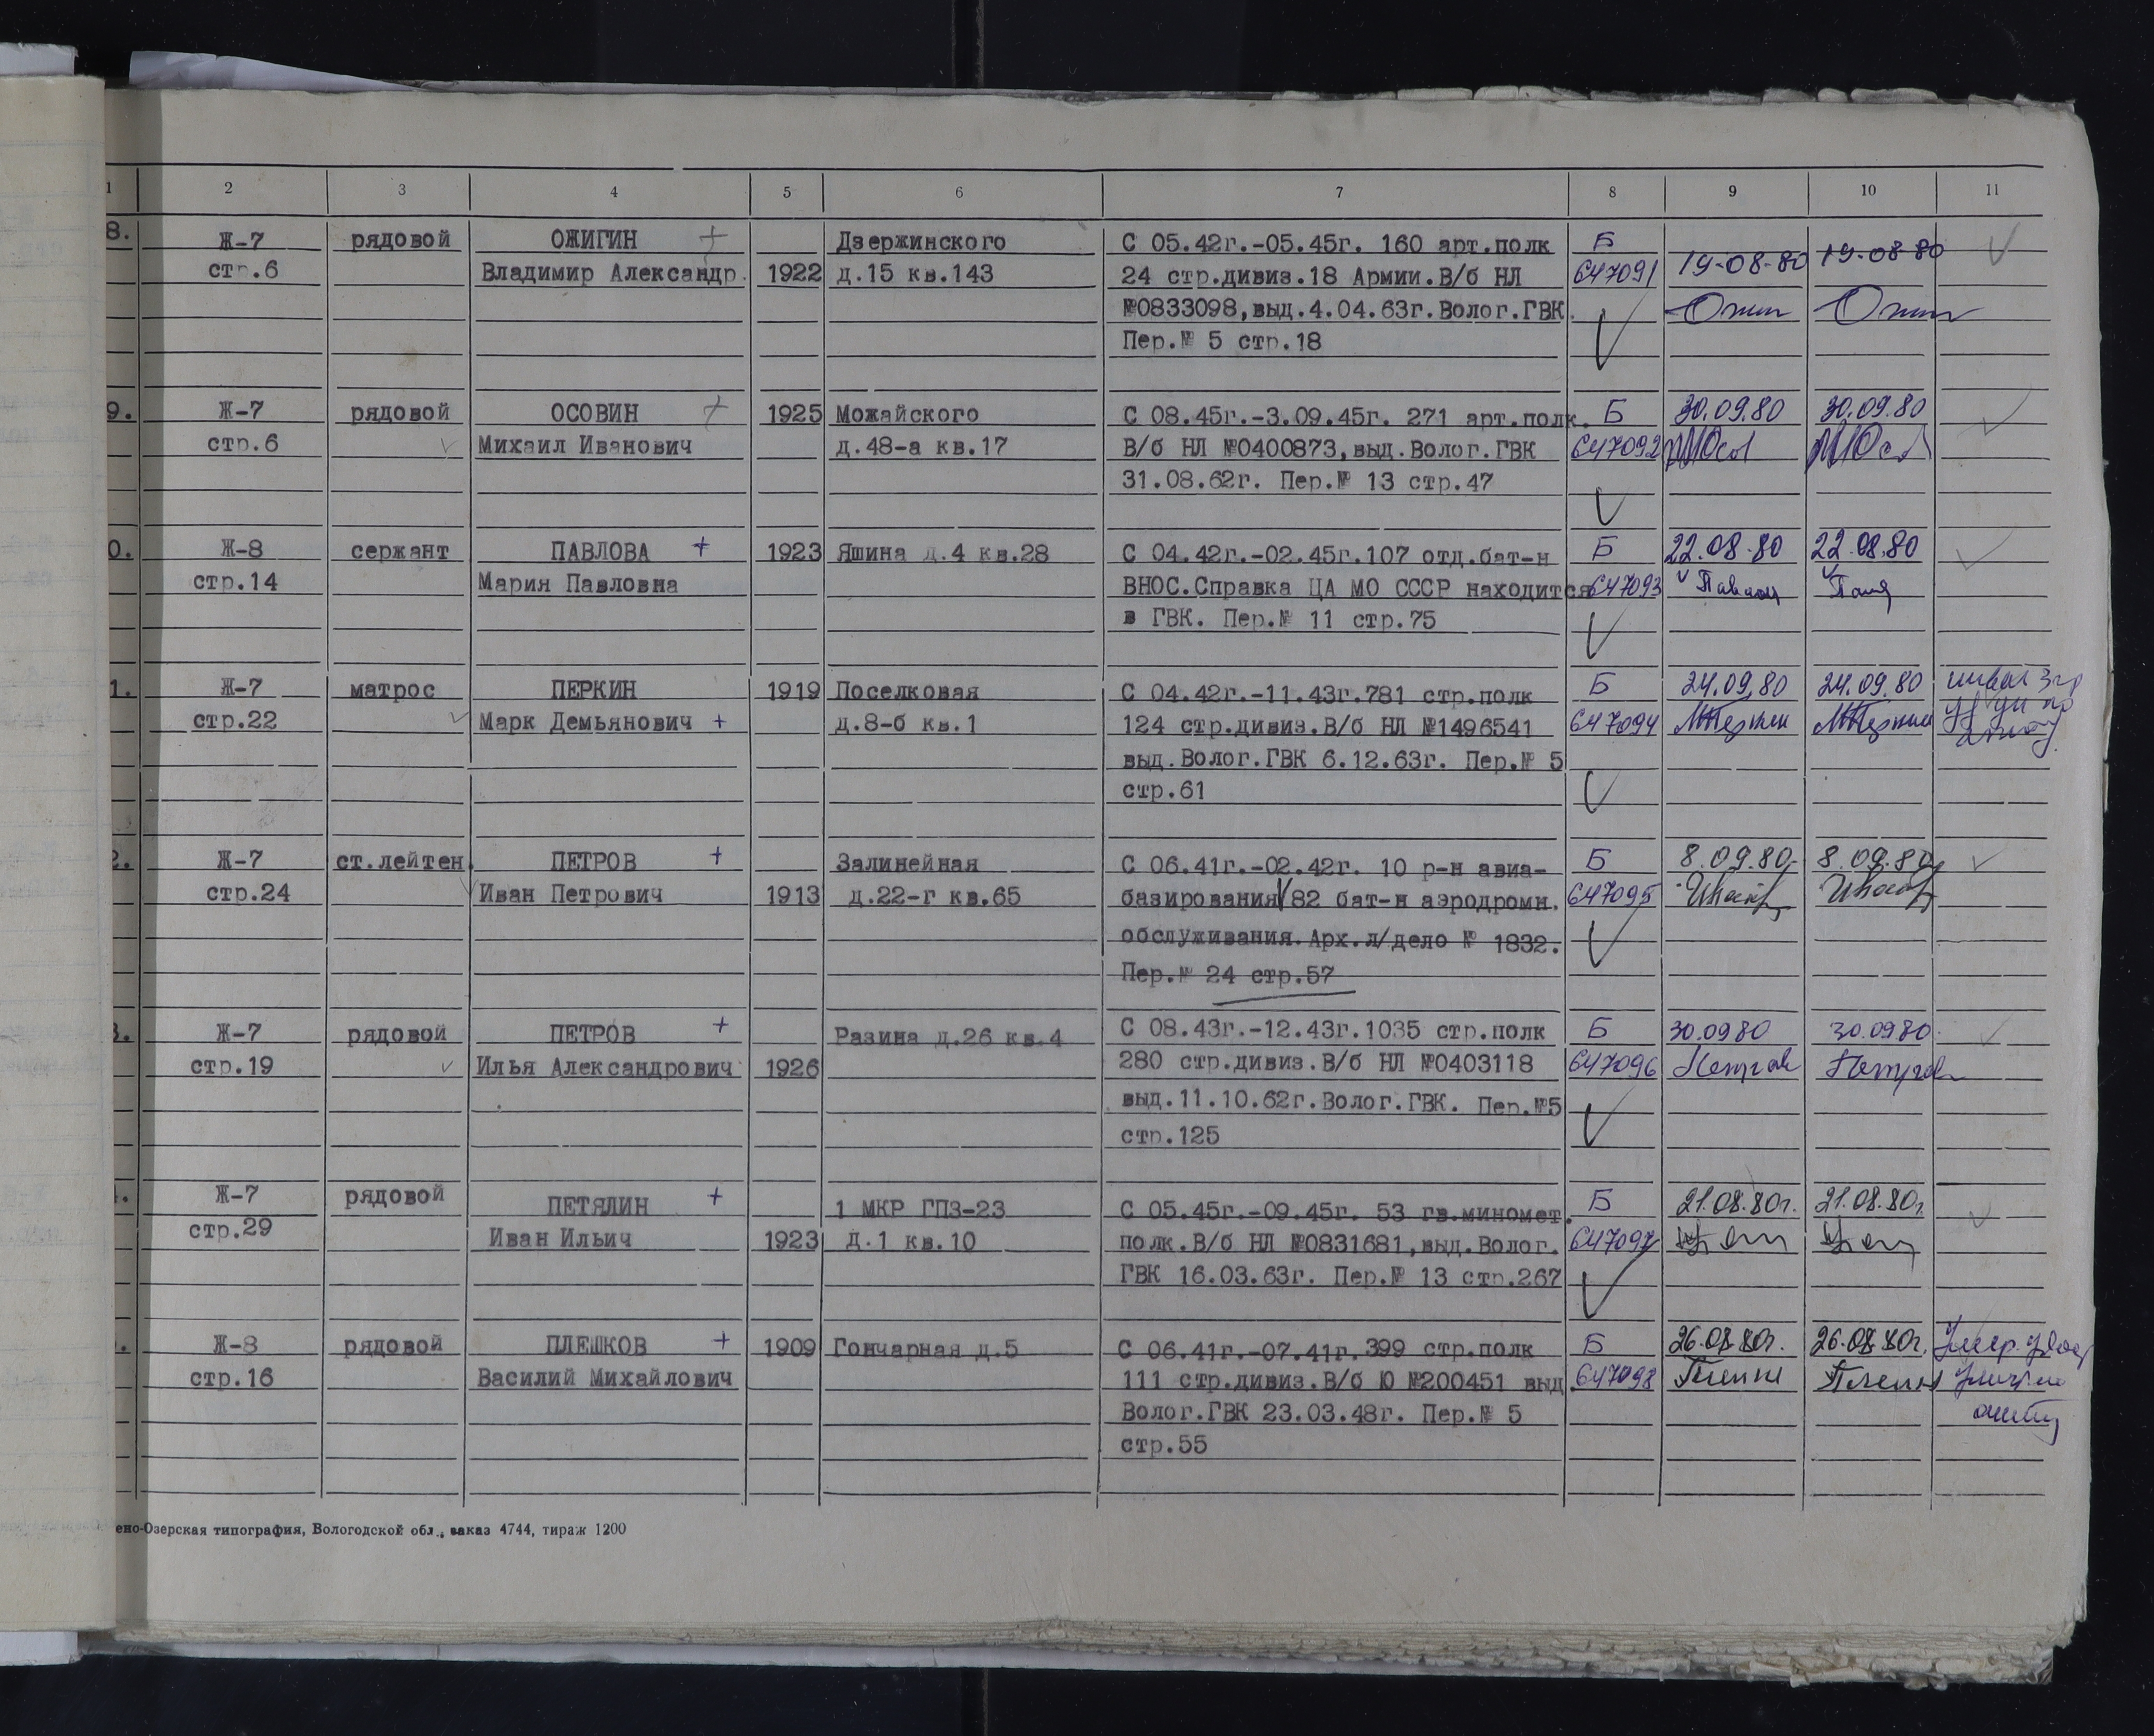 1 2 3 4 5 6 7 8 9 10 11
8. Ж-7 рядовой ОЖИГИН + Дзержинского С 05.42г.-05.45г. 160 арт.полк Б 19-08-80 19-08-80
стр.6 Владимир Александр. 1922 д.15 кв.143 24 стр.дивиз.18 Армии.В/б НЛ 647091
№0833098,выд.4.04.63г.Волог.ГВК.
Пер.№ 5 стр.18
9. Ж-7 рядовой ОСОВИН + 1925 Можайского С 08.45г.-3.09.45г. 271 арт.полк. Б 30.09.80 30.09.80
стр.6 Михаил Иванович д.48-а кв.17 В/б НЛ №0400873,выд.Волог.ГВК 647092
31.08.62г. Пер.№ 13 стр.47
0. Ж-8 сержант ПАВЛОВА + 1923 Яшина д.4 кв.28 С 04.42г.-02.45г.107 отд.бат-н Б 22.08.80 22.08.80
стр.14 Мария Павловна ВНОС.Справка ЦА МО СССР находится 647093
в ГВК. Пер.№ 11 стр.75
1. Ж-7 матрос ПЕРКИН 1919 Поселковая С 04.42г.-11.43г.781 стр.полк Б 24.09.80 24.09.80
стр.22 Марк Демьянович + д.8-б кв.1 124 стр.дивиз.В/б НЛ №1496541 647094
выд.Волог.ГВК 6.12.63г. Пер.№ 5
стр.61
2. Ж-7 ст.лейтен. ПЕТРОВ + Залинейная С 06.41г.-02.42г. 10 р-н авиа- Б 8.09.80 8.09.80
стр.24 Иван Петрович 1913 д.22-г кв.65 базирования 82 бат-н аэродромн. 647095
обслуживания. Арх.л/дело № 1832.
Пер.№ 24 стр.57
3. Ж-7 рядовой ПЕТРОВ + Разина д.26 кв.4 С 08.43г.-12.43г.1035 стр.полк Б 30.09.80 30.09.80
стр.19 Илья Александрович 1926 280 стр.дивиз.В/б НЛ №0403118 647096 Петров Петров
выд.11.10.62г.Волог.ГВК. Пер.№5
стр.125
Ж-7 рядовой ПЕТЯЛИН + 1 МКР ГПЗ-23 С 05.45г.-09.45г. 53 гв.миномет. Б 21.08.80г. 21.08.80г.
стр.29 Иван Ильич 1923 Д.1 кв.10 полк.В/б НЛ №0831681,выд.Волог. 647097
ГВК 16.03.63г. Пер.№ 13 стр.267
Ж-8 рядовой ПЛЕШКОВ + 1909 Гончарная д.5 С 06.41г.-07.41г.399 стр.полк Б 26.08.80г. 26.08.80г.
стр.16 Василий Михайлович 111 стр.дивиз.В/б Ю №200451 выд. 647098
Волог.ГВК 23.03.48г. Пер.№ 5
стр.55
ено-Озерская типография, Вологодской обл., заказ 4744, тираж 1200